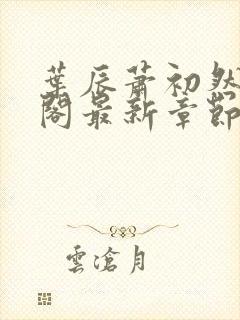 葉辰蕭初然
閣最新章節
雲滄月